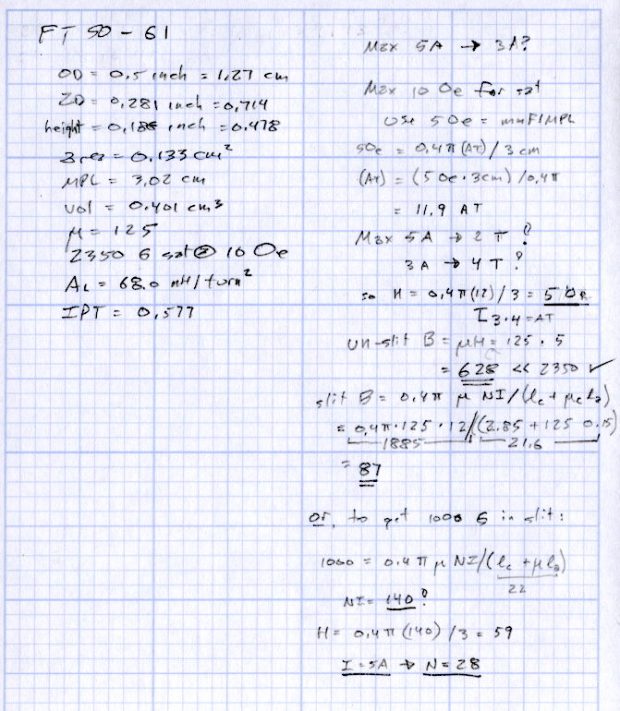 FT 50 - 61
OD = 0.5 inch = 1.27 cm
ID = 0.281 inch = 0.714
height = 0.188 inch = 0.478
area = 0.133 cm²
MPL = 3.02 cm
vol = 0.401 cm³
μ = 125
2350 G sat @ 10 Oe
AL = 68.0 nH/turn²
IPT = 0.577
Max 5A → 3A?
Max 10 Oe for sat
Use 5 Oe = mmF/MPL
5Oe = 0.4π (AT) / 3 cm
(AT) = (5 Oe · 3cm) / 0.4π
= 11.9 AT
Max 5A → 2 T?
3A → 4 T?
so H = 0.4π(12)/3 = 5 Oe
I 3·4 = AT
un-slit B = μH = 125 · 5
= 628 << 2350 ✓
slit B = 0.4π μ NI/(lc + μc la)
= 0.4π·125·12/(2.85 + 125 0.15)
1885 21.6
= 87
or, to get 1000 G in slit:
1000 = 0.4π μ NI/(lc + μ la)
22
NI = 140?
H = 0.4π (140) / 3 = 59
I = 5A → N = 28